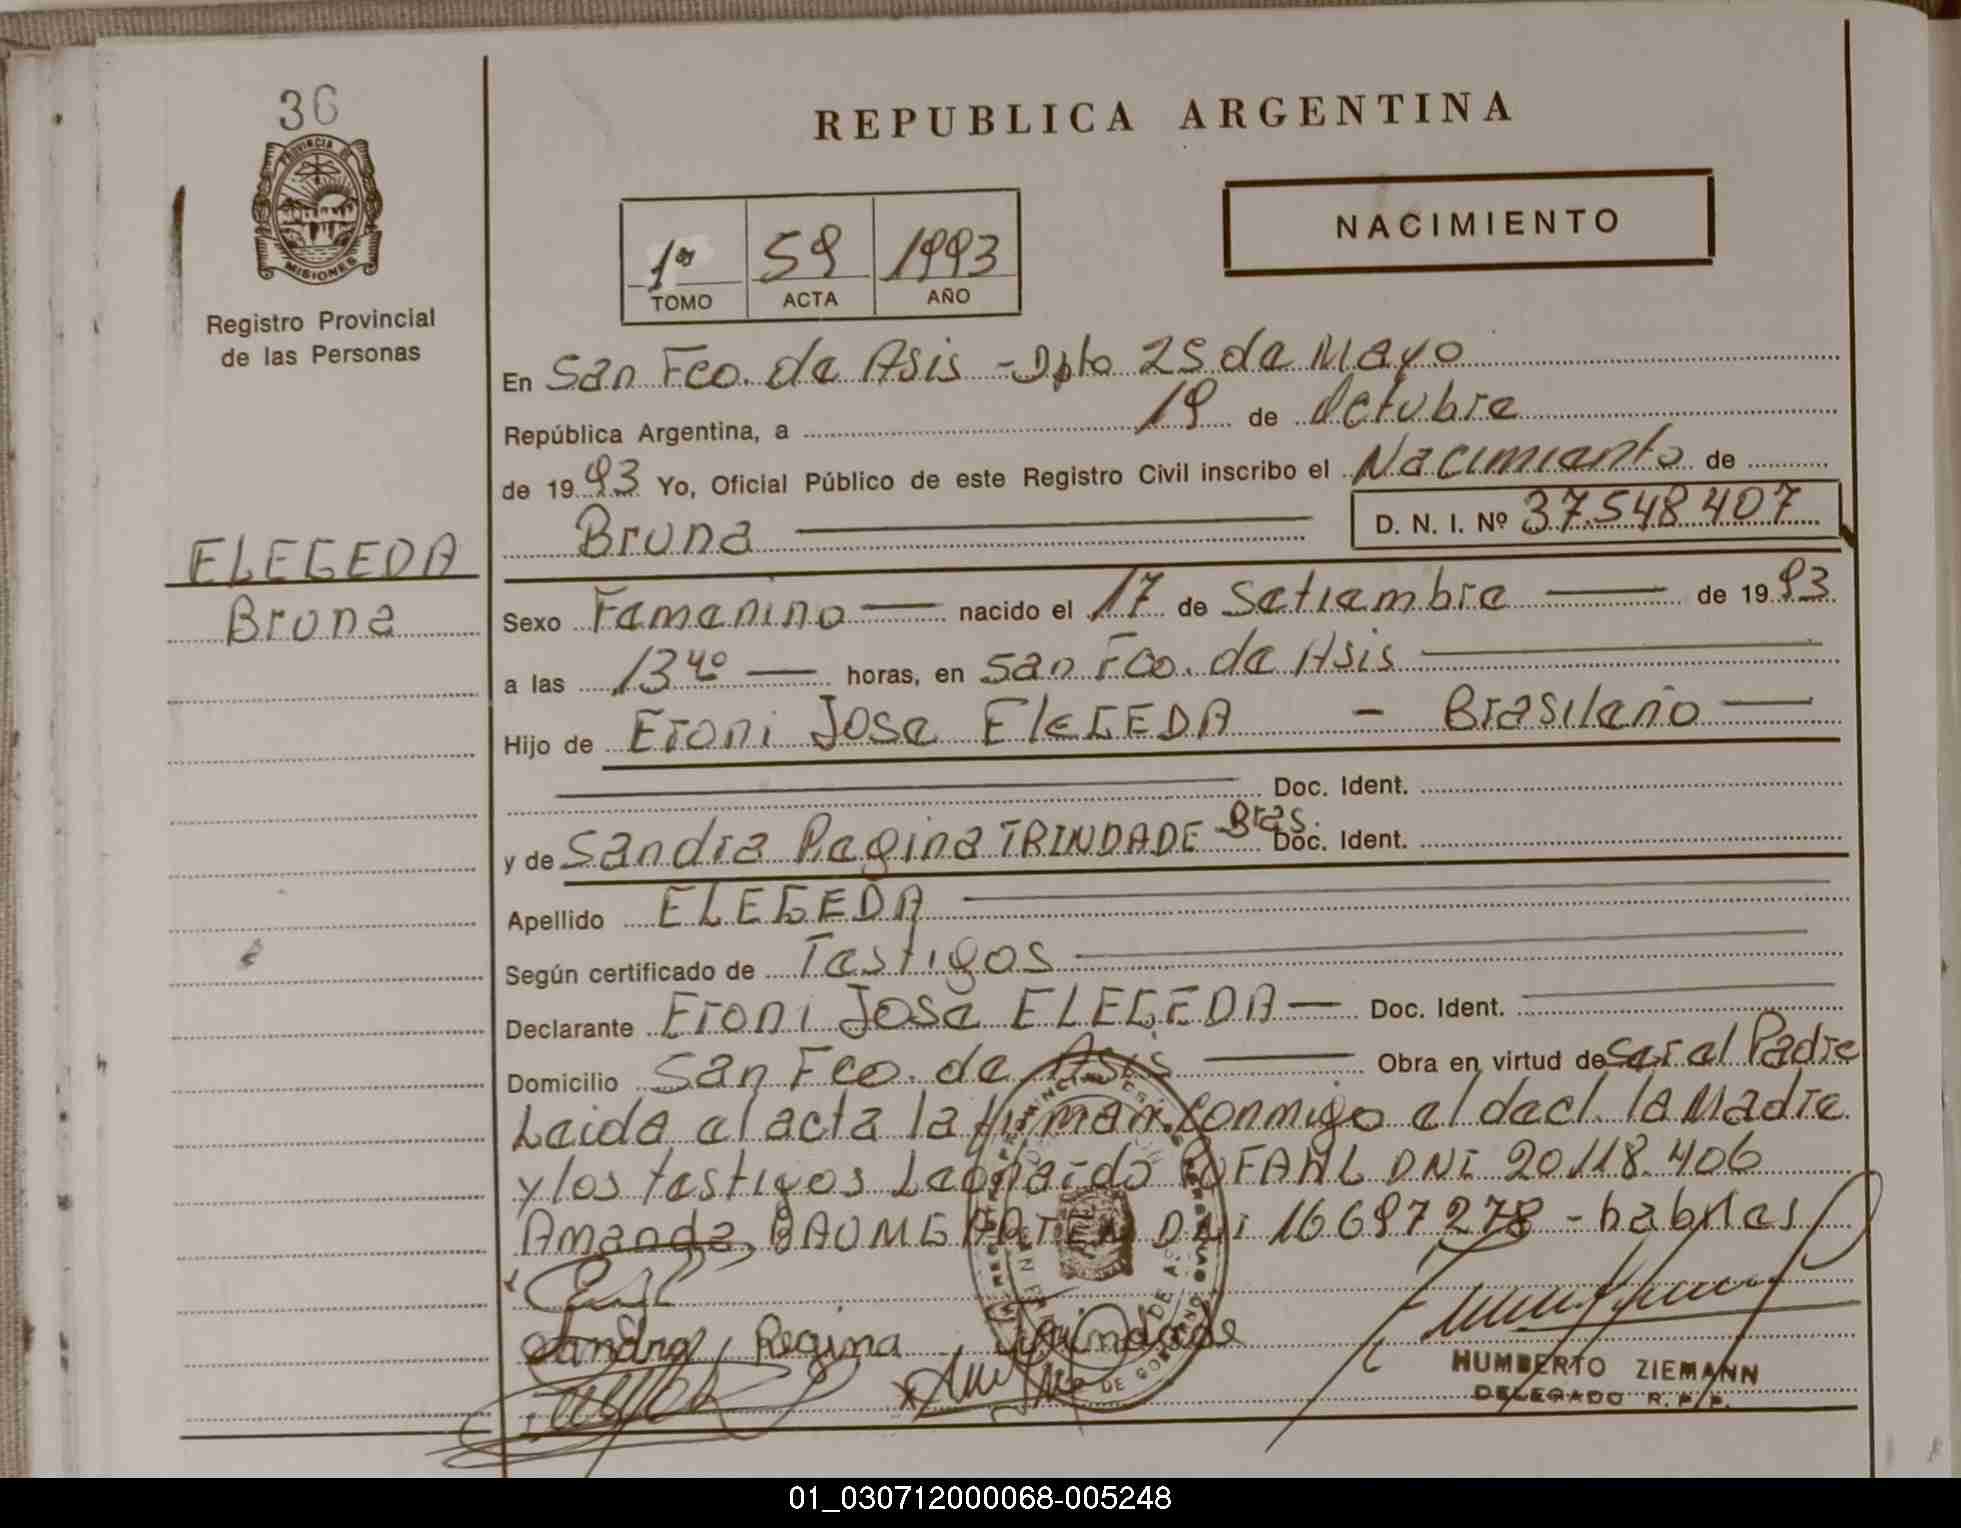 36
PROVINCIA DE
MISIONES
Registro Provincial
de las Personas
ELEGEDA
Bruna
REPUBLICA ARGENTINA
NACIMIENTO
1º 59 1993
TOMO ACTA AÑO
En San Fco. de Asis - Dpto 25 de Mayo
República Argentina, a 19 de Octubre
de 1993 Yo, Oficial Público de este Registro Civil inscribo el Nacimiento de
Bruna D. N. I. Nº 37.548407
Sexo Femenino nacido el 17 de Setiembre de 1993
a las 13 40 horas, en San Fco. de Asis
Hijo de Eroni Jose EleGEDA - Brasileño
Doc. Ident.
y de Sandra Regina TRINDADE Bras. Doc. Ident.
Apellido ELEGEDA
Según certificado de Testigos
Declarante Eroni Jose ELEGEDA Doc. Ident.
Domicilio San Fco. de Asis Obra en virtud de Ser el Padre
Leida el acta la firman conmigo el decl. la Madre
y los testigos Leonardo DNI 20.118.406
Amanda, BAUMGARTEN DNI 16697278 - habiles
Sandra Regina Trindade
HUMBERTO ZIEMANN
DELEGADO R. P. P.
01_030712000068-005248